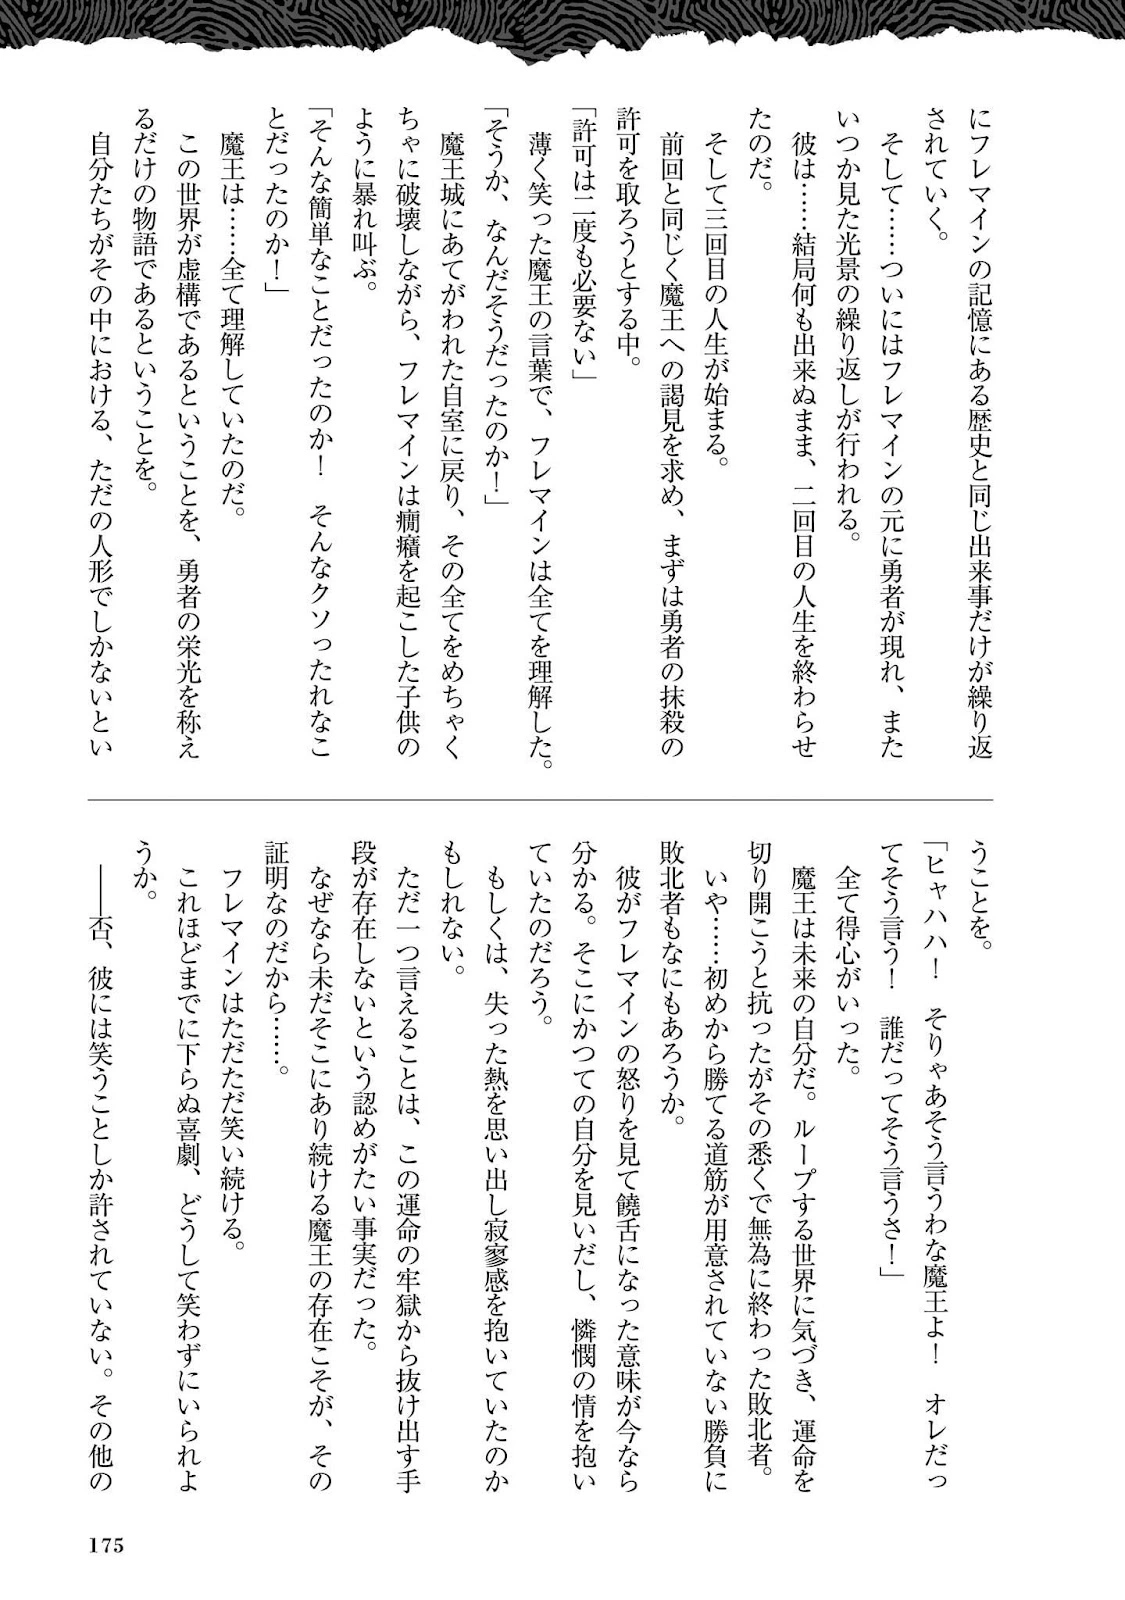 にフレマインの記憶にある歴史と同じ出来事だけが繰り返
されていく。
　そして……ついにはフレマインの元に勇者が現れ、また
いつか見た光景の繰り返しが行われる。
　彼は……結局何も出来ぬまま、二回目の人生を終わらせ
たのだ。
　そして三回目の人生が始まる。
　前回と同じく魔王への謁見を求め、まずは勇者の抹殺の
許可を取ろうとする中。
「許可は二度も必要ない」
　薄く笑った魔王の言葉で、フレマインは全てを理解した。
「そうか、なんだそうだったのか！」
　魔王城にあてがわれた自室に戻り、その全てをめちゃく
ちゃに破壊しながら、フレマインは癇癪を起こした子供の
ように暴れ叫ぶ。
「そんな簡単なことだったのか！　そんなクソったれなこ
とだったのか！」
　魔王は……全て理解していたのだ。
　この世界が虚構であるということを、勇者の栄光を称え
るだけの物語であるということを。
　自分たちがその中における、ただの人形でしかないとい
うことを。
「ヒャハハ！　そりゃあそう言うわな魔王よ！　オレだっ
てそう言う！　誰だってそう言うさ！」
　全て得心がいった。
　魔王は未来の自分だ。ループする世界に気づき、運命を
切り開こうと抗ったがその悉くで無為に終わった敗北者。
　いや……初めから勝てる道筋が用意されていない勝負に
敗北者もなにもあろうか。
　彼がフレマインの怒りを見て饒舌になった意味が今なら
分かる。そこにかつての自分を見いだし、憐憫の情を抱い
ていたのだろう。
　もしくは、失った熱を思い出し寂寥感を抱いていたのか
もしれない。
　ただ一つ言えることは、この運命の牢獄から抜け出す手
段が存在しないという認めがたい事実だった。
　なぜなら未だそこにあり続ける魔王の存在こそが、その
証明なのだから……。
　フレマインはただただ笑い続ける。
　これほどまでに下らぬ喜劇、どうして笑わずにいられよ
うか。
　――否、彼には笑うことしか許されていない。その他の
175